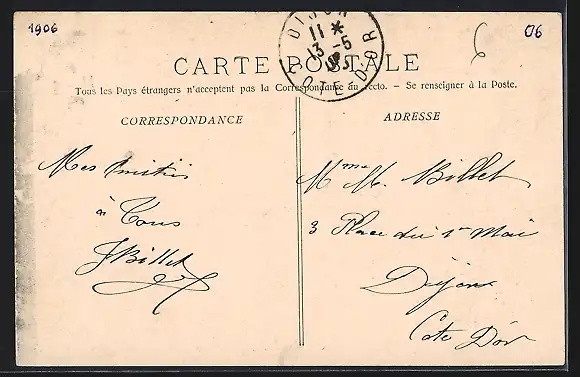 1906
06
6
DIJON
11 *
13 - 5
COTE D'OR
CARTE POSTALE
Tous les Pays étrangers n'acceptent pas la Correspondance au recto. – Se renseigner à la Poste.
CORRESPONDANCE
Mes Amitiés
à Tous
J Billet
ADRESSE
Mme M. Billet
3 Place du 1er Mai
Dijon
Cote D'or